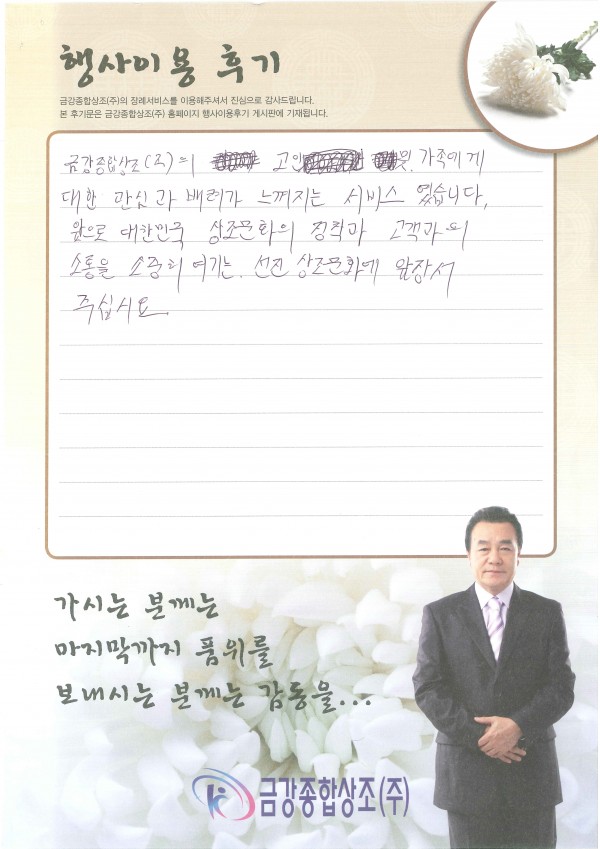 행사이용 후기
금강종합상조(주)의 장례서비스를 이용해주셔서 진심으로 감사드립니다.
본 후기문은 금강종합상조(주) 홈페이지 행사이용후기 게시판에 기재됩니다.
금강종합상조(주)의 고인 및 가족에게
대한 관심과 배려가 느껴지는 서비스 였습니다.
앞으로 대한민국 상조문화의 정착과 고객과의
소통을 소중히 여기는 선진 상조문화에 앞장서
주십시요.
가시는 분께는
마지막까지 품위를
보내시는 분께는 감동을...
금강종합상조(주)